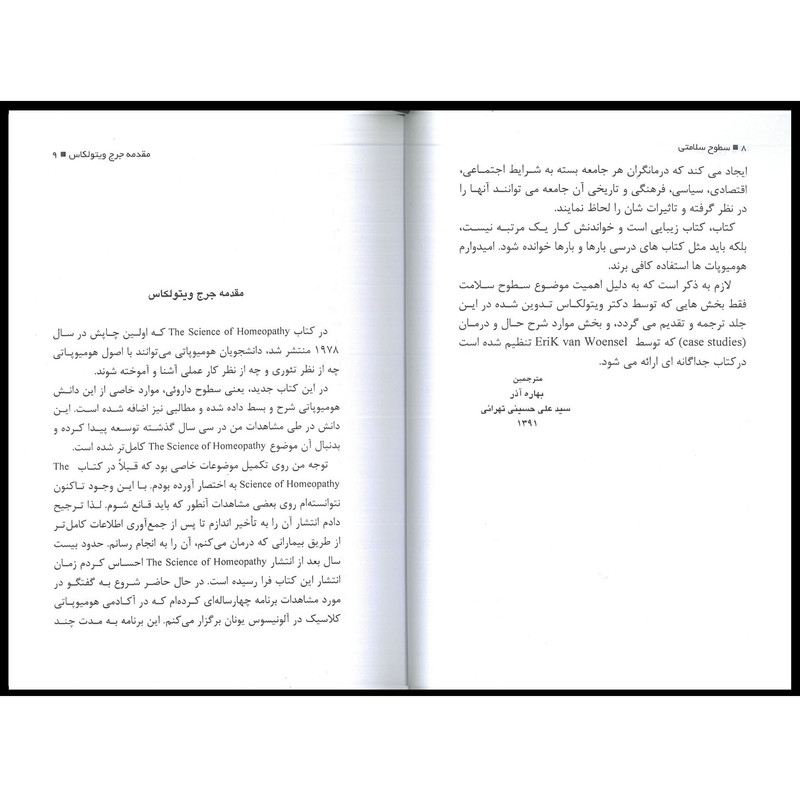 ۸ ■ سطوح سلامتی
ایجاد می کند که درمانگران هر جامعه بسته به شرایط اجتماعی،
اقتصادی، سیاسی، فرهنگی و تاریخی آن جامعه می توانند آنها را
در نظر گرفته و تاثیرات شان را لحاظ نمایند.
کتاب، کتاب زیبایی است و خواندنش کار یک مرتبه نیست،
بلکه باید مثل کتاب های درسی بارها و بارها خوانده شود. امیدوارم
هومیوپات ها استفاده کافی برند.
لازم به ذکر است که به دلیل اهمیت موضوع سطوح سلامت
فقط بخش هایی که توسط دکتر ویتولکاس تدوین شده در این
جلد ترجمه و تقدیم می گردد، و بخش موارد شرح حال و درمان
(case studies) که توسط EriK van Woensel تنظیم شده است
در کتاب جداگانه ای ارائه می شود.
مترجمین
بهاره آذر
سید علی حسینی تهرانی
۱۳۹۱
مقدمه جرج ویتولکاس ■ ۹
مقدمه جرج ویتولکاس
در کتاب The Science of Homeopathy که اولین چاپش در سال
۱۹۷۸ منتشر شد، دانشجویان هومیوپاتی می‌توانند با اصول هومیوپاتی
چه از نظر تئوری و چه از نظر کار عملی آشنا و آموخته شوند.
در این کتاب جدید، یعنی سطوح داروئی، موارد خاصی از این دانش
هومیوپاتی شرح و بسط داده شده و مطالبی نیز اضافه شده است. این
دانش در طی مشاهدات من در سی سال گذشته توسعه پیدا کرده و
بدنبال آن موضوع The Science of Homeopathy کامل‌تر شده است.
توجه من روی تکمیل موضوعات خاصی بود که قبلاً در کتاب The
Science of Homeopathy به اختصار آورده بودم. با این وجود تاکنون
نتوانسته‌ام روی بعضی مشاهدات آنطور که باید قانع شوم. لذا ترجیح
دادم انتشار آن را به تأخیر اندازم تا پس از جمع‌آوری اطلاعات کامل‌تر
از طریق بیمارانی که درمان می‌کنم، آن را به انجام رسانم. حدود بیست
سال بعد از انتشار The Science of Homeopathy احساس کردم زمان
انتشار این کتاب فرا رسیده است. در حال حاضر شروع به گفتگو در
مورد مشاهدات برنامه چهارساله‌ای کرده‌ام که در آکادمی هومیوپاتی
کلاسیک در آلونیسوس یونان برگزار می‌کنم. این برنامه به مدت چند